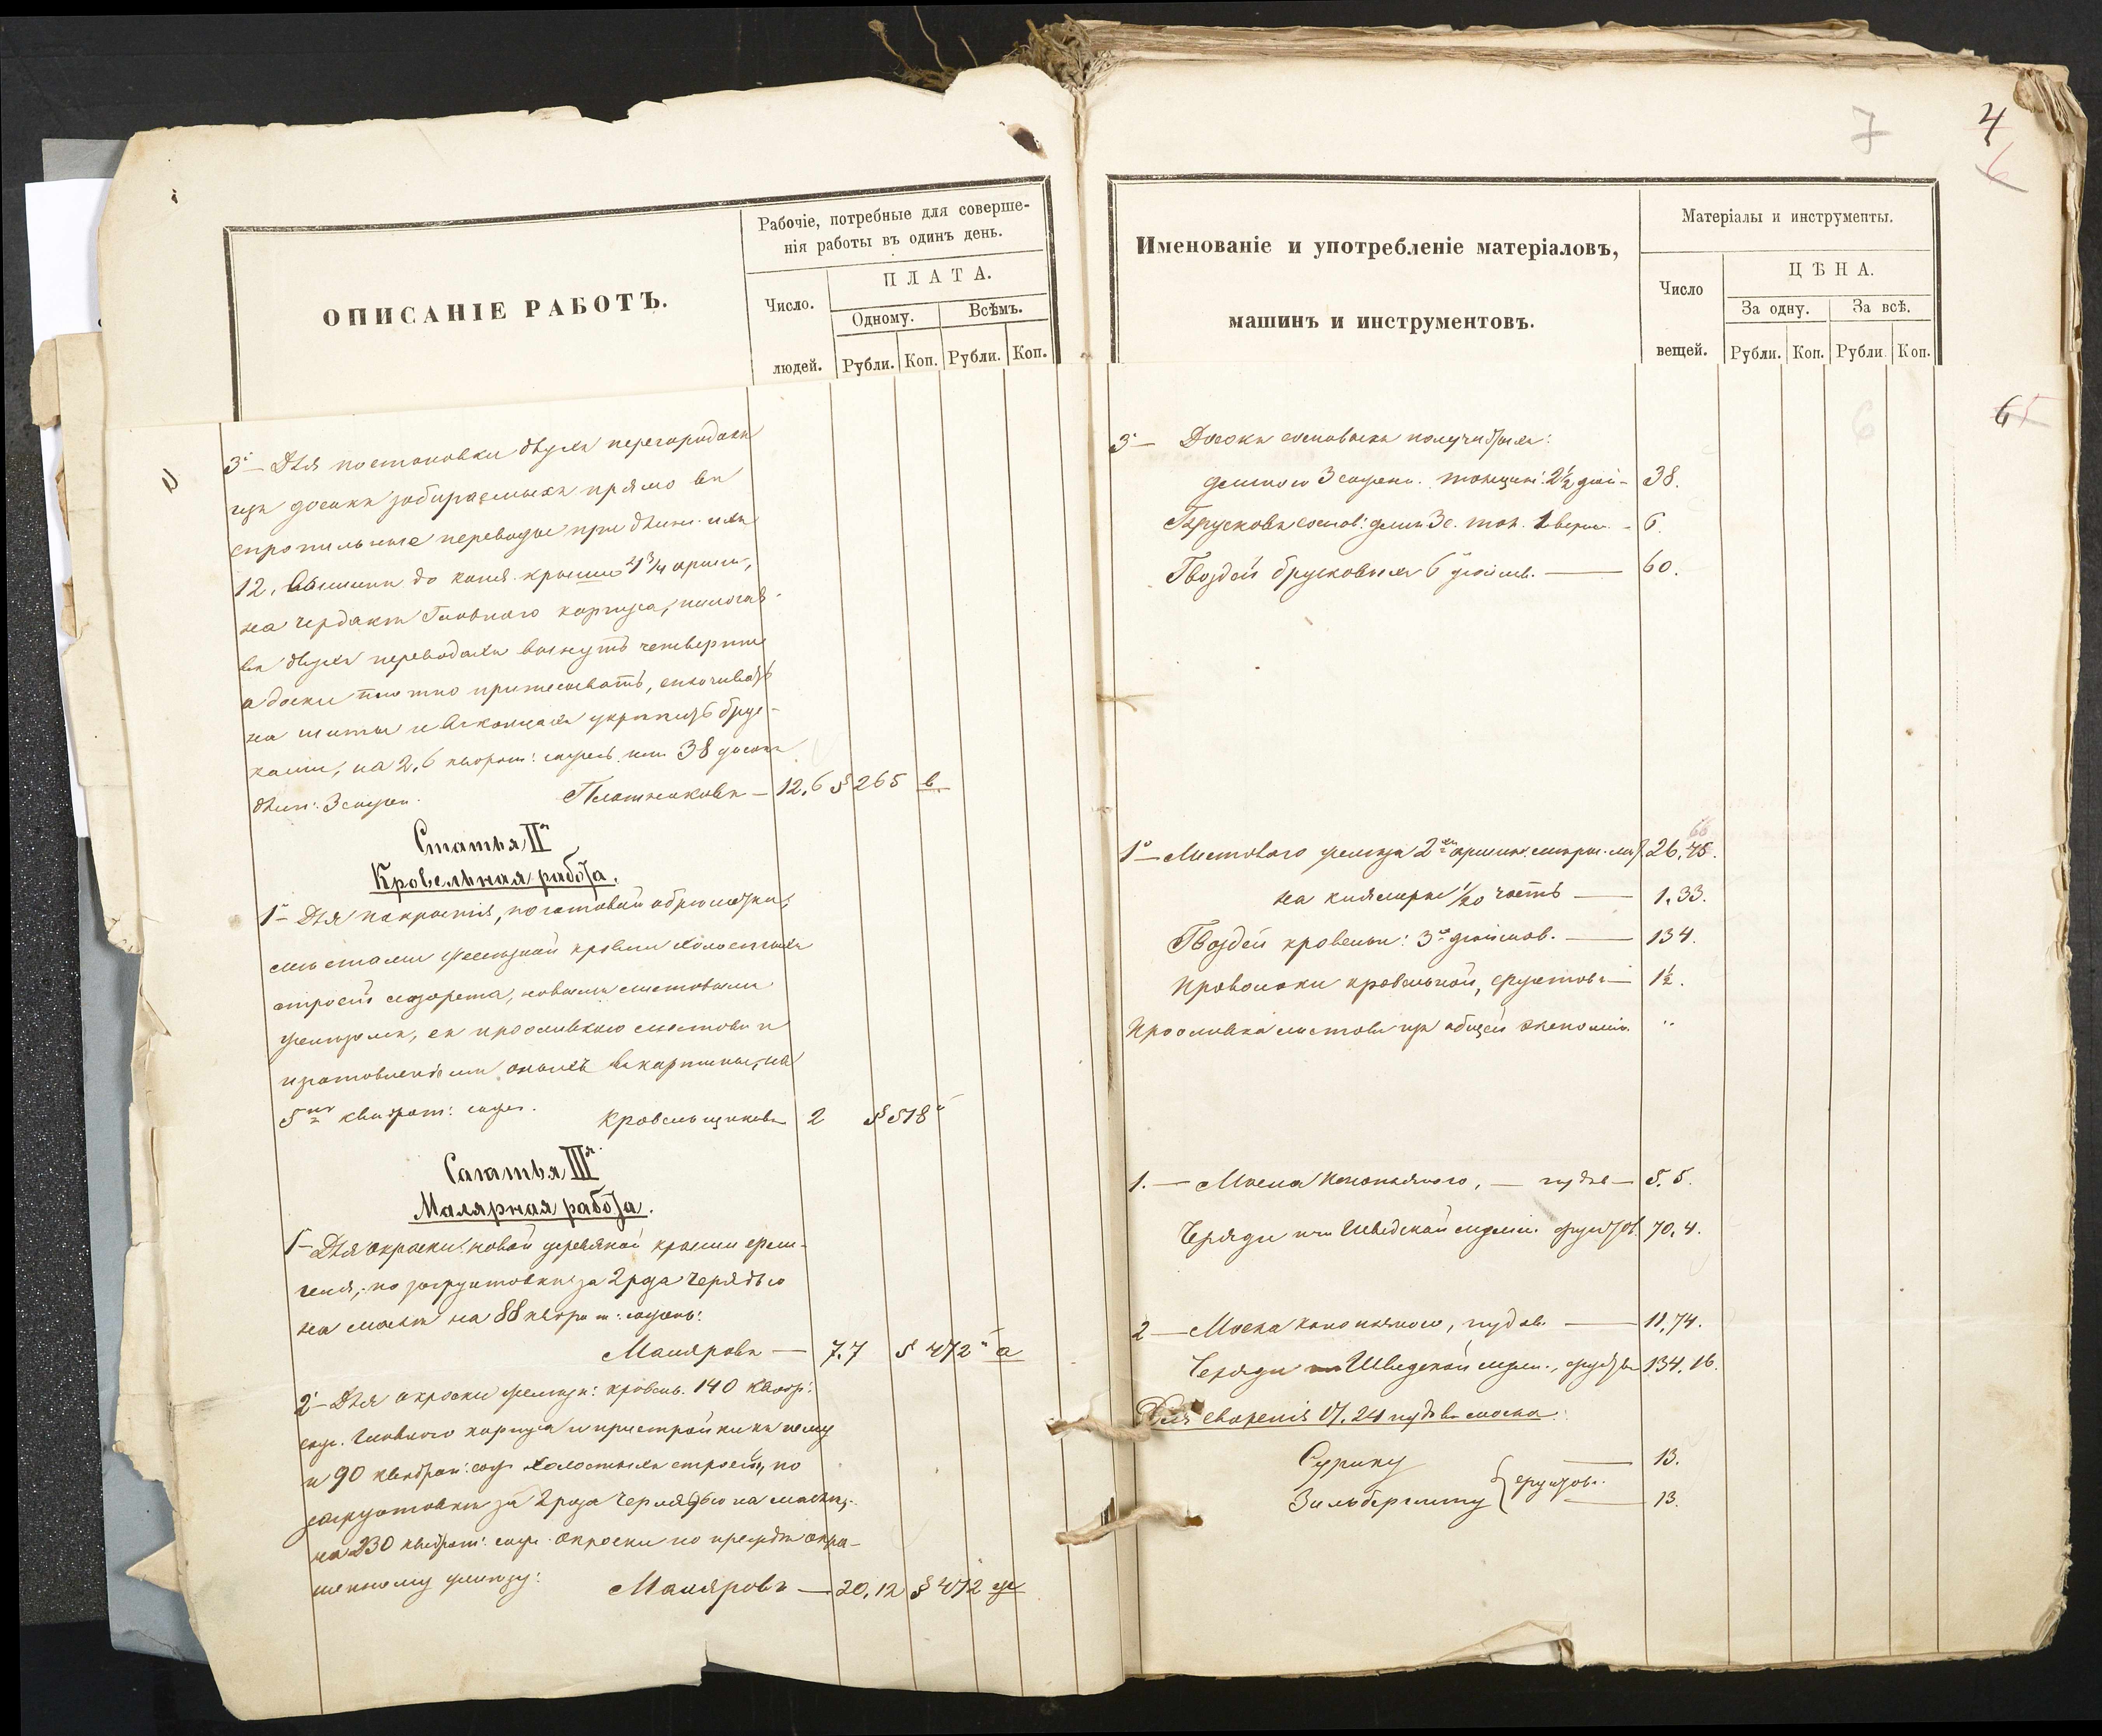 ОПИСАНІЕ РАБОТЪ.
Рабочіе, потребные для соверше-
нія работы въ одинъ день.
Число.
людей.
ПЛАТА.
Одному.
Всѣмъ.
Рубли. Коп. Рубли. Коп.
3 — Для постановки двухъ перегородокъ
изъ досокъ забираемыхъ прямо въ
пропильные переводы при длинѣ ихъ
12, вышины до конь. крыши 4 3/4 арши-,
на чердакѣ Главнаго корпуса,
въ двухъ переводахъ вынуть четверти
а доски плотно притесывать, сплочивать
на шипы и въ концахъ укрѣпить брус-
ками, на 2,6 квадрат: сажень или 38 досокъ
длин: 3 сажен.
Плотниковъ — 12,6 § 265 в
Статья II я
Кровельная работа.
1 — Для покрытія, по готовой обрѣшеткѣ,
мѣстами желѣзной кровли холостыхъ
строеній лазарета, новымъ листовымъ
желѣзомъ, съ проолифкою листовъ и
изготовленіемъ оныхъ въ картины, на
5 ти квадрат: саж.
Кровельщиковъ 2 § 518
Статья III я
Малярная работа.
1 — Для окраски новой деревяной крыши
по загрунтовкѣ за 2 раза черлядью
на маслѣ на 88 квадрат: сажень:
Маляровъ — 7.7 § 472 а
2 — Для окраски желѣзн: кровель. 140 квадр:
саж. Главнаго корпуса и пристройки къ нему
и 90 квадрат: саж холостыхъ строеній, по
загрунтовкѣ за 2 раза черлядью на маслѣ,
на 230 квадрат: саж. окраски по прежде окра-
шенному желѣзу:
Маляровъ — 20,12 § 472 ж
7
4
6
Именованіе и употребленіе матеріаловъ,
машинъ и инструментовъ.
Матеріалы и инструменты.
Число
вещей.
ЦѢНА.
За одну.
За всѣ.
Рубли. Коп. Рубли. Коп.
6
3 — Досокъ сосновыхъ получистыхъ:
длиною 3 сажен. толщин: 2 1/2 дюй — 38.
Брусковъ соснов: длин 3 с. тол. 1 верш. — 6.
Гвоздей брусковыхъ 6 дюймов. — 60.
1 — Листоваго желѣза 2 аршин. 26,75.
66
на клямеры 1/20 часть — 1,33.
Гвоздей кровельн: 3 дюймов. — 134.
Проволоки кровельной, фунтовъ — 1 1/2.
Проолифка листовъ изъ общей экономіи. "
1. — Масла конопляного, — пудъ — 5.5.
Черляди или Шведской муміи. фунтов. 70,4.
2 — Масла конопляного, пудов. — 11,74.
Черляди Шведской мумі., фунтовъ 134,16.
Для сваренія 17,24 пудовъ масла:
Сурику — 13.
Зильберглету } фунтов. — 13.